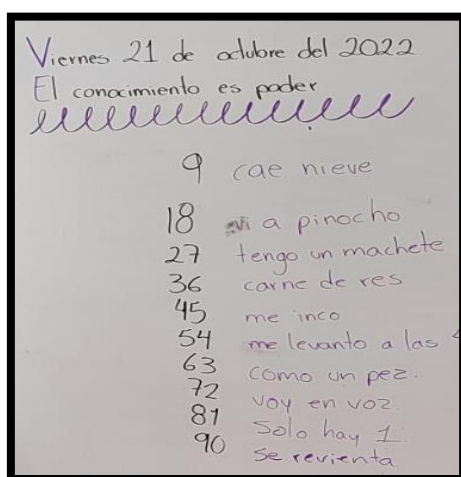 Viernes 21 de octubre del 2022
El conocimiento es poder
9 cae nieve
18 vi a pinocho
27 tengo un machete
36 carne de res
45 me inco
54 me levanto a las 4
63 como un pez.
72 voy en voz.
81 Solo hay 1.
90 se revienta